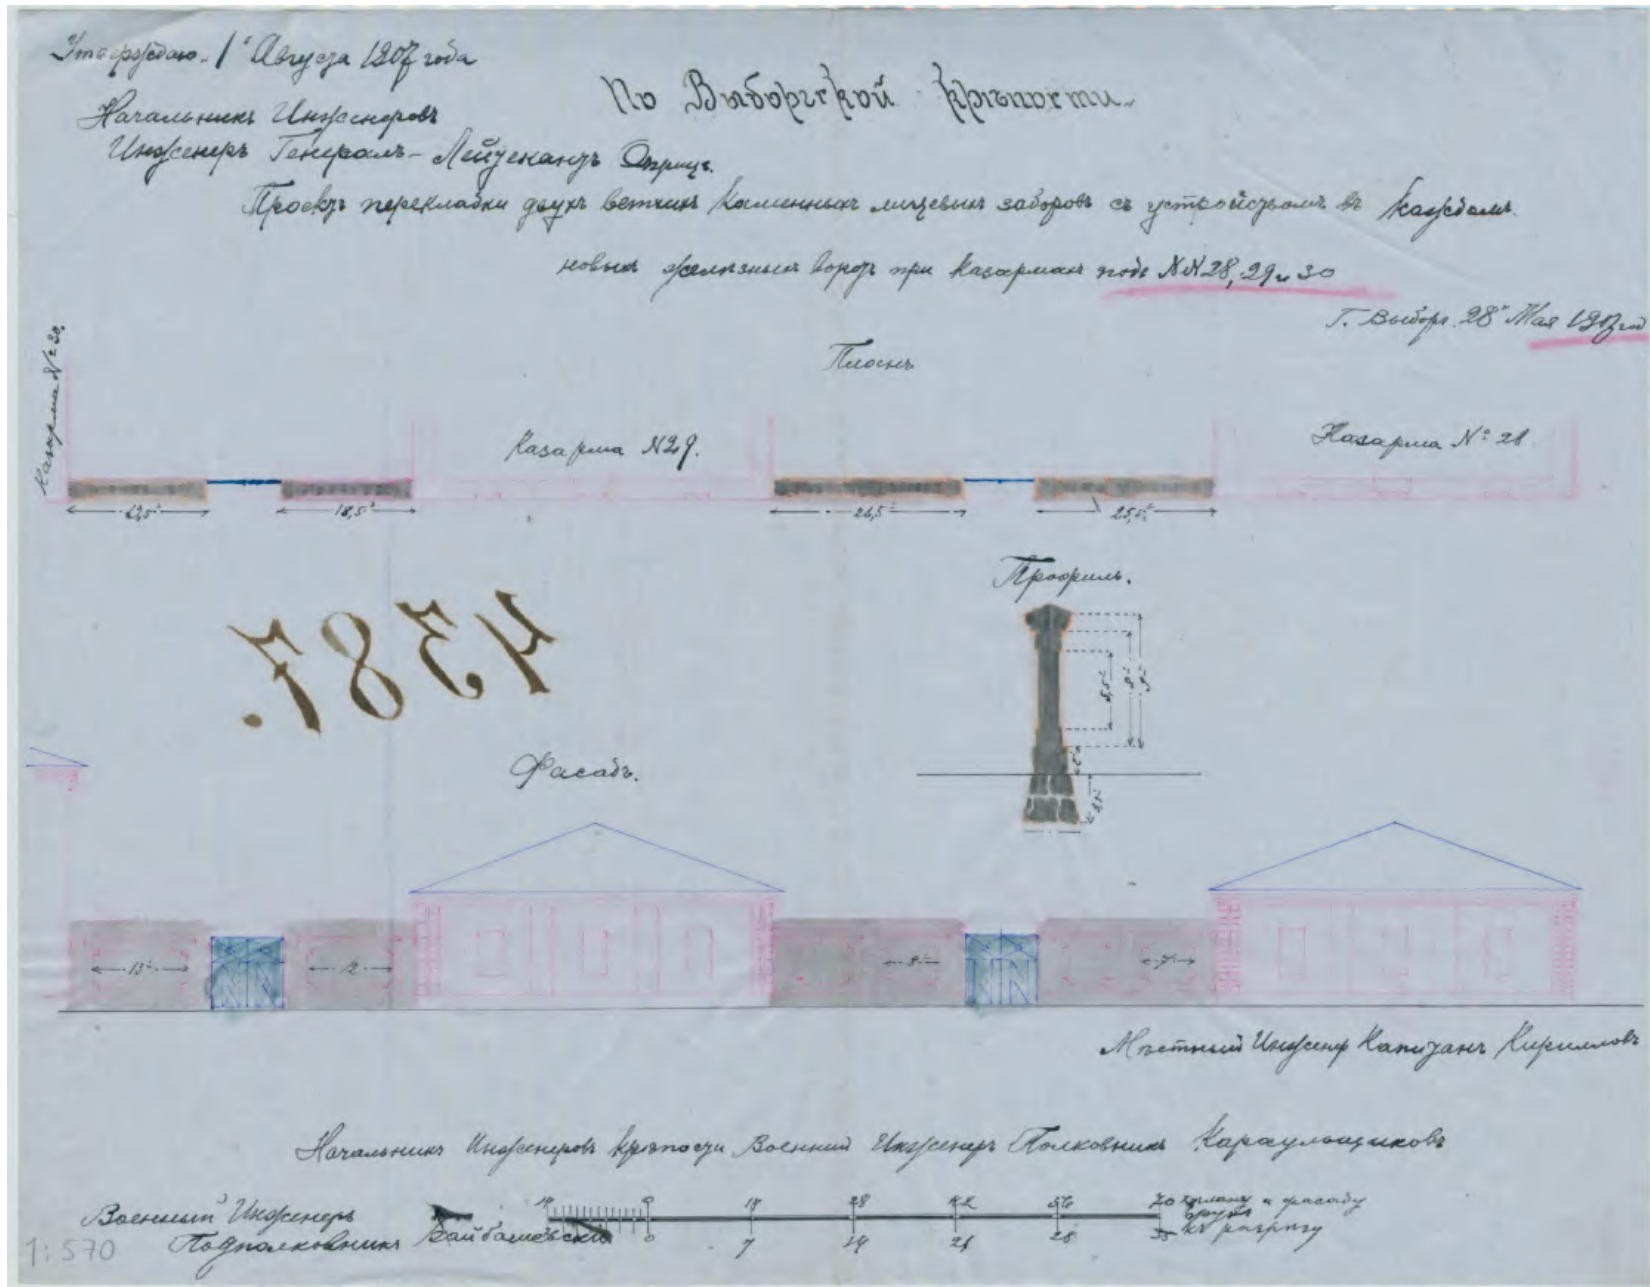 Утверждаю. 1 Августа 1907 года
Начальникъ Инженеровъ
Инженеръ Генералъ-Лейтенантъ
По Выборгской крѣпости.
Проектъ перекладки двухъ ветхихъ каменныхъ лицевыхъ заборовъ съ устройствомъ въ каждомъ
новыхъ желѣзныхъ воротъ при казармахъ подъ NN 28, 29 и 30
Г. Выборгъ 28 Мая 1907 год
Планъ
Казарма № 30.
Казарма N 29.
Казарма № 28.
18,5
26,5
25,5
Профиль.
8
9
4387.
Фасадъ.
13
12
8
7
Мѣстный Инженеръ Капитанъ Кирилловъ
Начальникъ Инженеровъ крѣпости Военный Инженеръ Полковникъ Караульщиковъ
Военный Инженеръ
Подполковникъ
14 0 14 28 42 56 70 къ плану и фасаду
0 7 14 21 28 35 къ разрѣзу
1:570